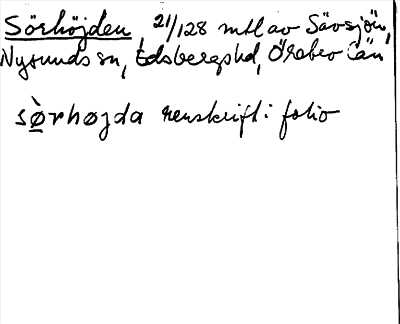 Sörhöjden, 21/128 mtl av Sävsjön,
Nysunds sn, Edsbergs hd, Örebro län
sø̀rhøjda renskrift i folio